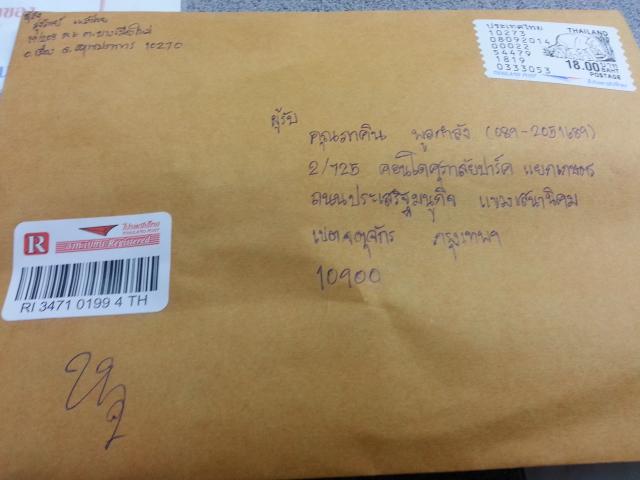 ผู้ส่ง
อ.เมือง จ.สมุทรปราการ 10270
ประเทศไทย
THAILAND
10273
08092014
00022
54479
1819
0333053
18.00 บาท
BAHT
POSTAGE
THAILAND POST
ไปรษณีย์ไทย
ผู้รับ
คุณภาคิน พูลกำลัง (089-2051689)
2/725 คอนโดศุภาลัยปาร์ค แยกเกษตร
ถนนประเสริฐมนูกิจ แขวงเสนานิคม
เขตจตุจักร กรุงเทพฯ
10900
R
ไปรษณีย์ไทย
THAILAND POST
ลงทะเบียน Registered
RI 3471 0199 4 TH